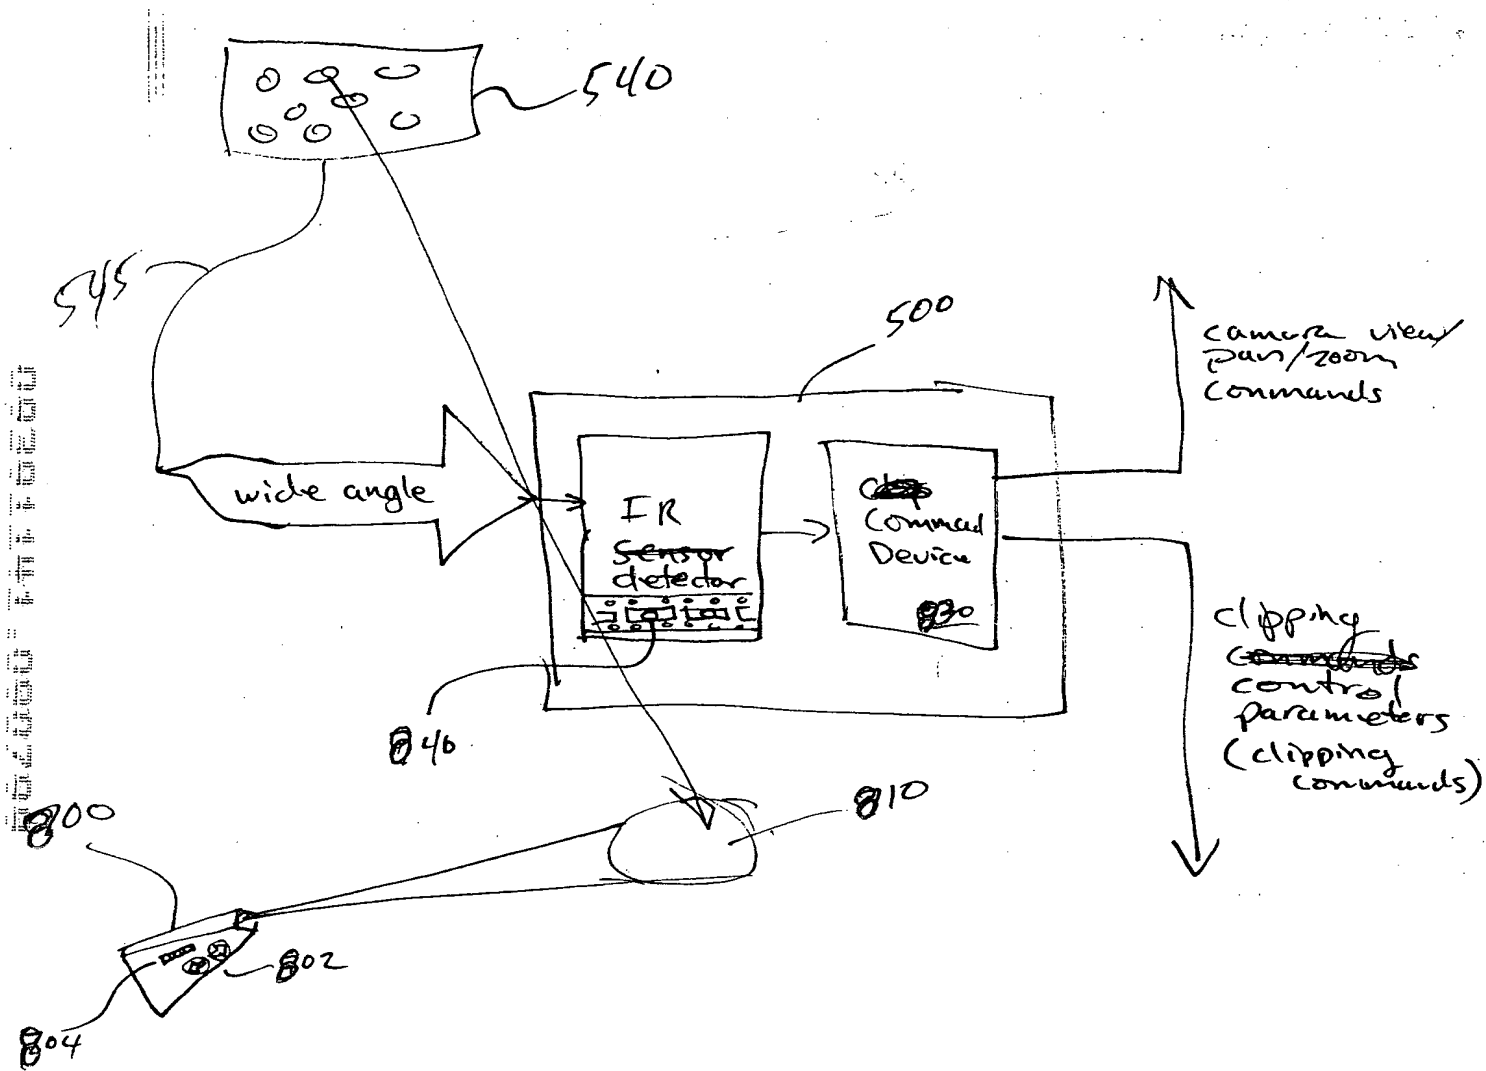 540
545
500
camera view/
pan/zoom
commands
wide angle
IR
Sensor
detector
Command
Device
830
clipping
commands
control
parameters
(clipping
commands)
840
810
800
802
804